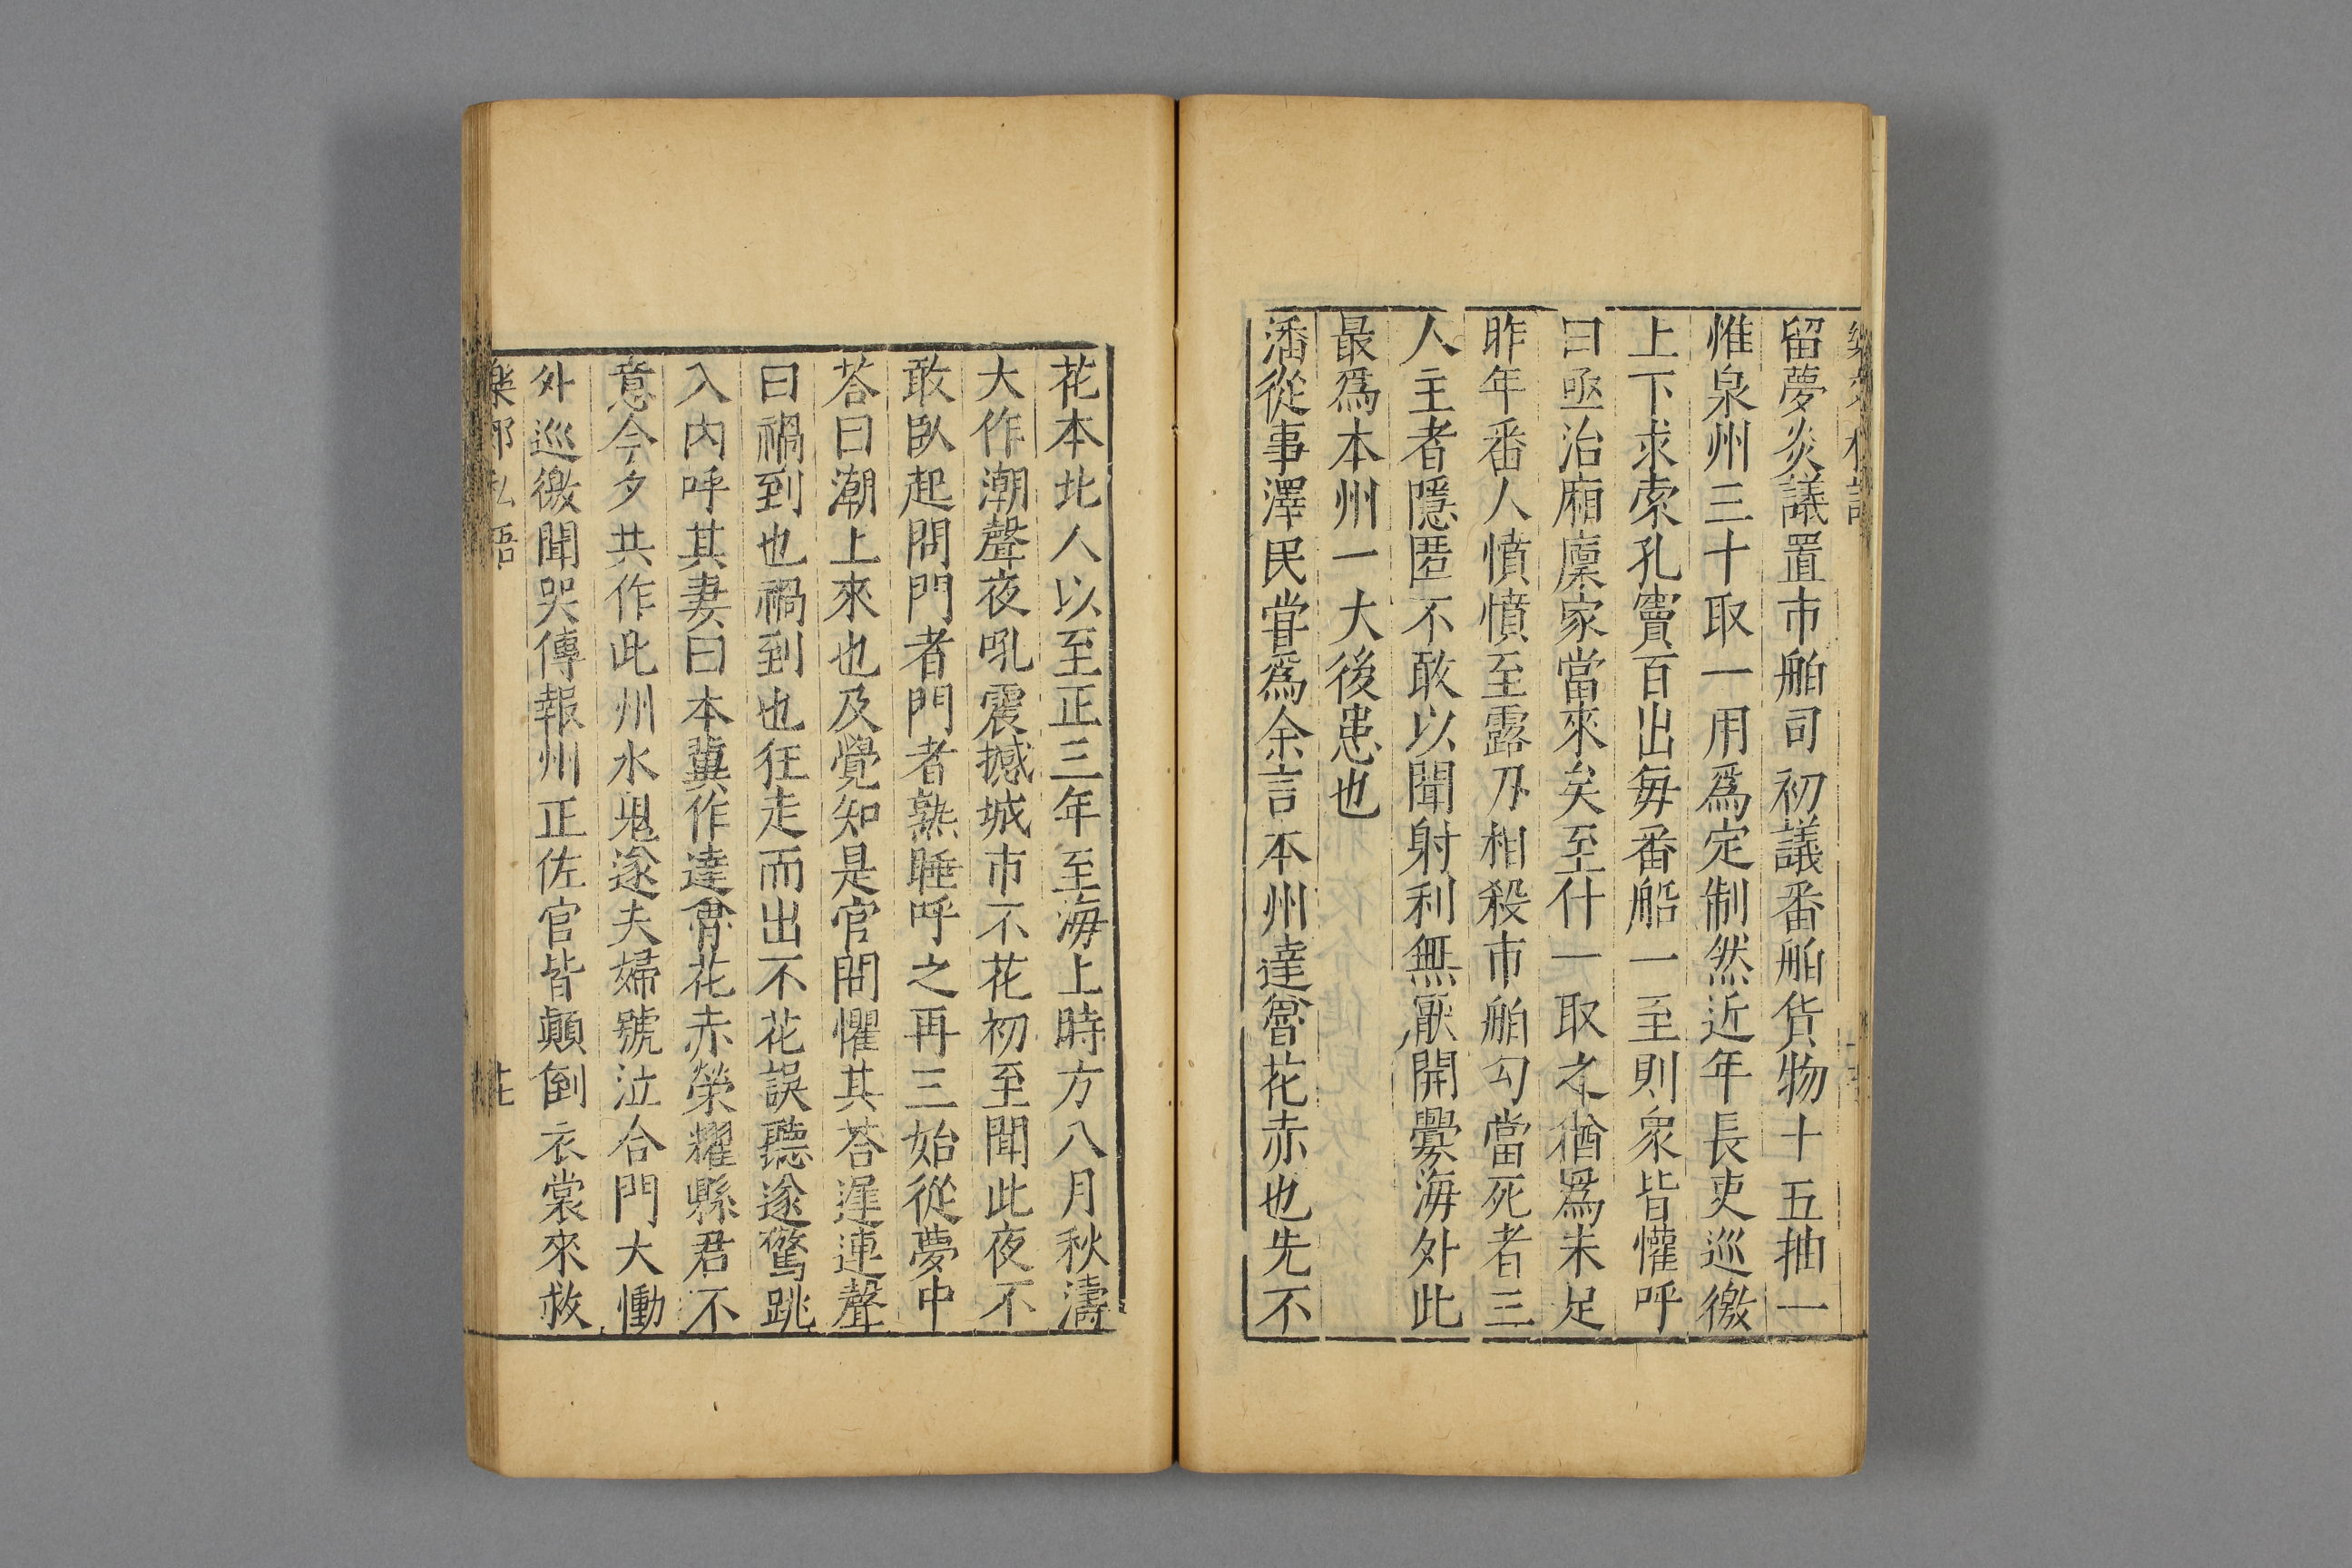 留夢炎議置市舶司初議番舶貨物十五抽一
惟泉州三十取一用爲定制然近年長吏巡徼
上下求索孔竇百出每番船一至則衆皆懽呼
曰亟治廂廩家當來矣至什一取之猶爲未足
昨年番人憤憤至露刃相殺市舶勾當死者三
人主者隱匿不敢以聞射利無厭開釁海外此
最爲本州一大後患也
潘從事澤民嘗爲余言本州達魯花赤也先不
花本北人以至正三年至海上時方八月秋濤
大作潮聲夜吼震撼城市不花初至聞此夜不
敢臥起問門者門者熟睡呼之再三始從夢中
荅曰潮上來也及覺知是官問懼其荅遲連聲
曰禍到也禍到也狂走而出不花誤聽遂驚跳
入內呼其妻曰本冀作達魯花赤榮耀縣君不
意今夕共作此州水鬼遂夫婦號泣合門大慟
外巡徼聞哭傳報州正佐官皆顛倒衣裳來救
樂郊私語